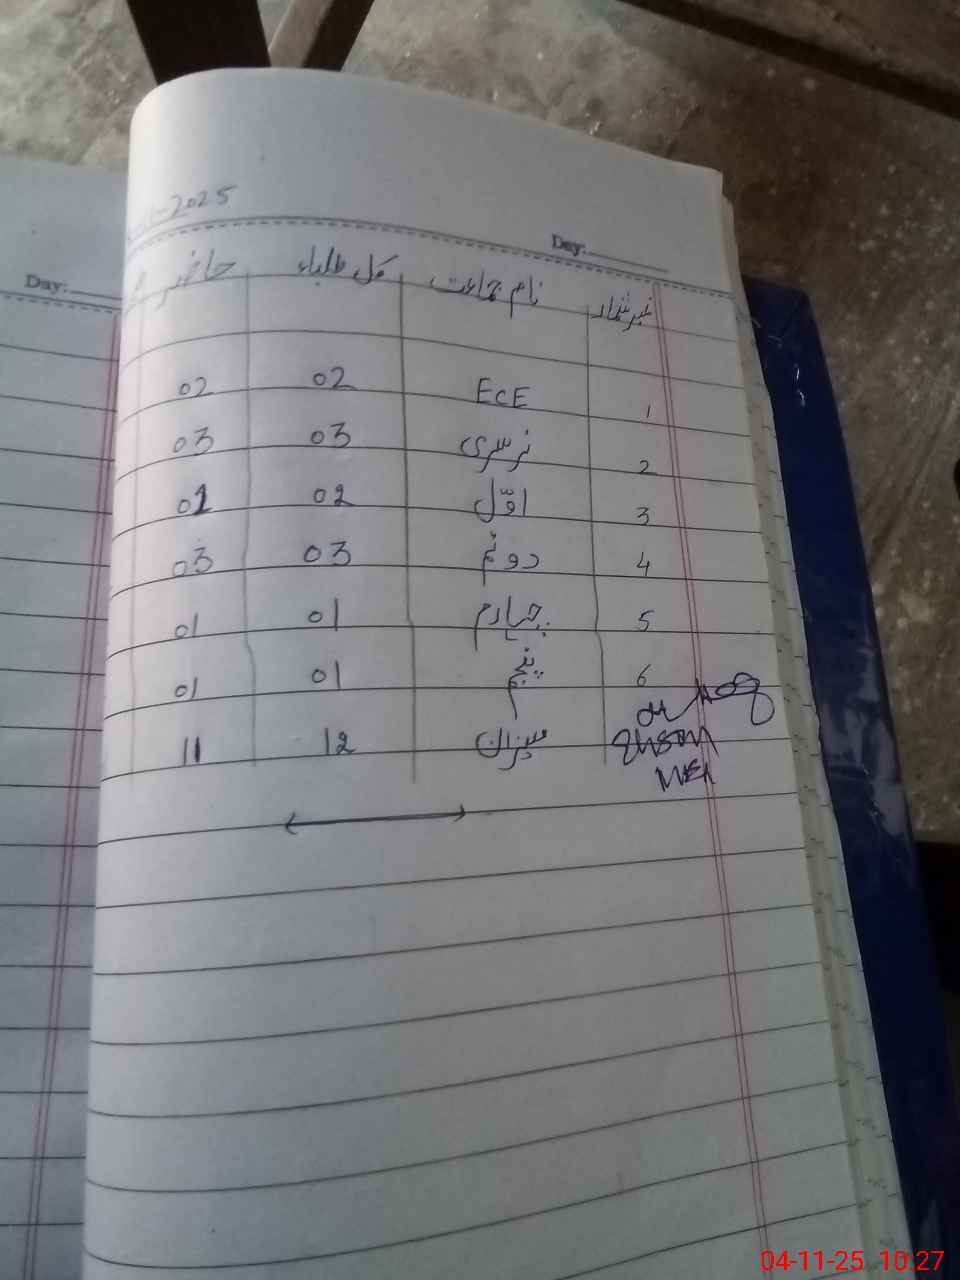 -2025
Day:
Day:
نمبر شمار نام جماعت کل طلباء حاضر
1 ECE 02 02
2 نرسری 03 03
3 اوّل 02 01
4 دوئم 03 03
5 چہارم 01 01
6 پنجم 01 01
میزان 12 11
04-11-25 10:27